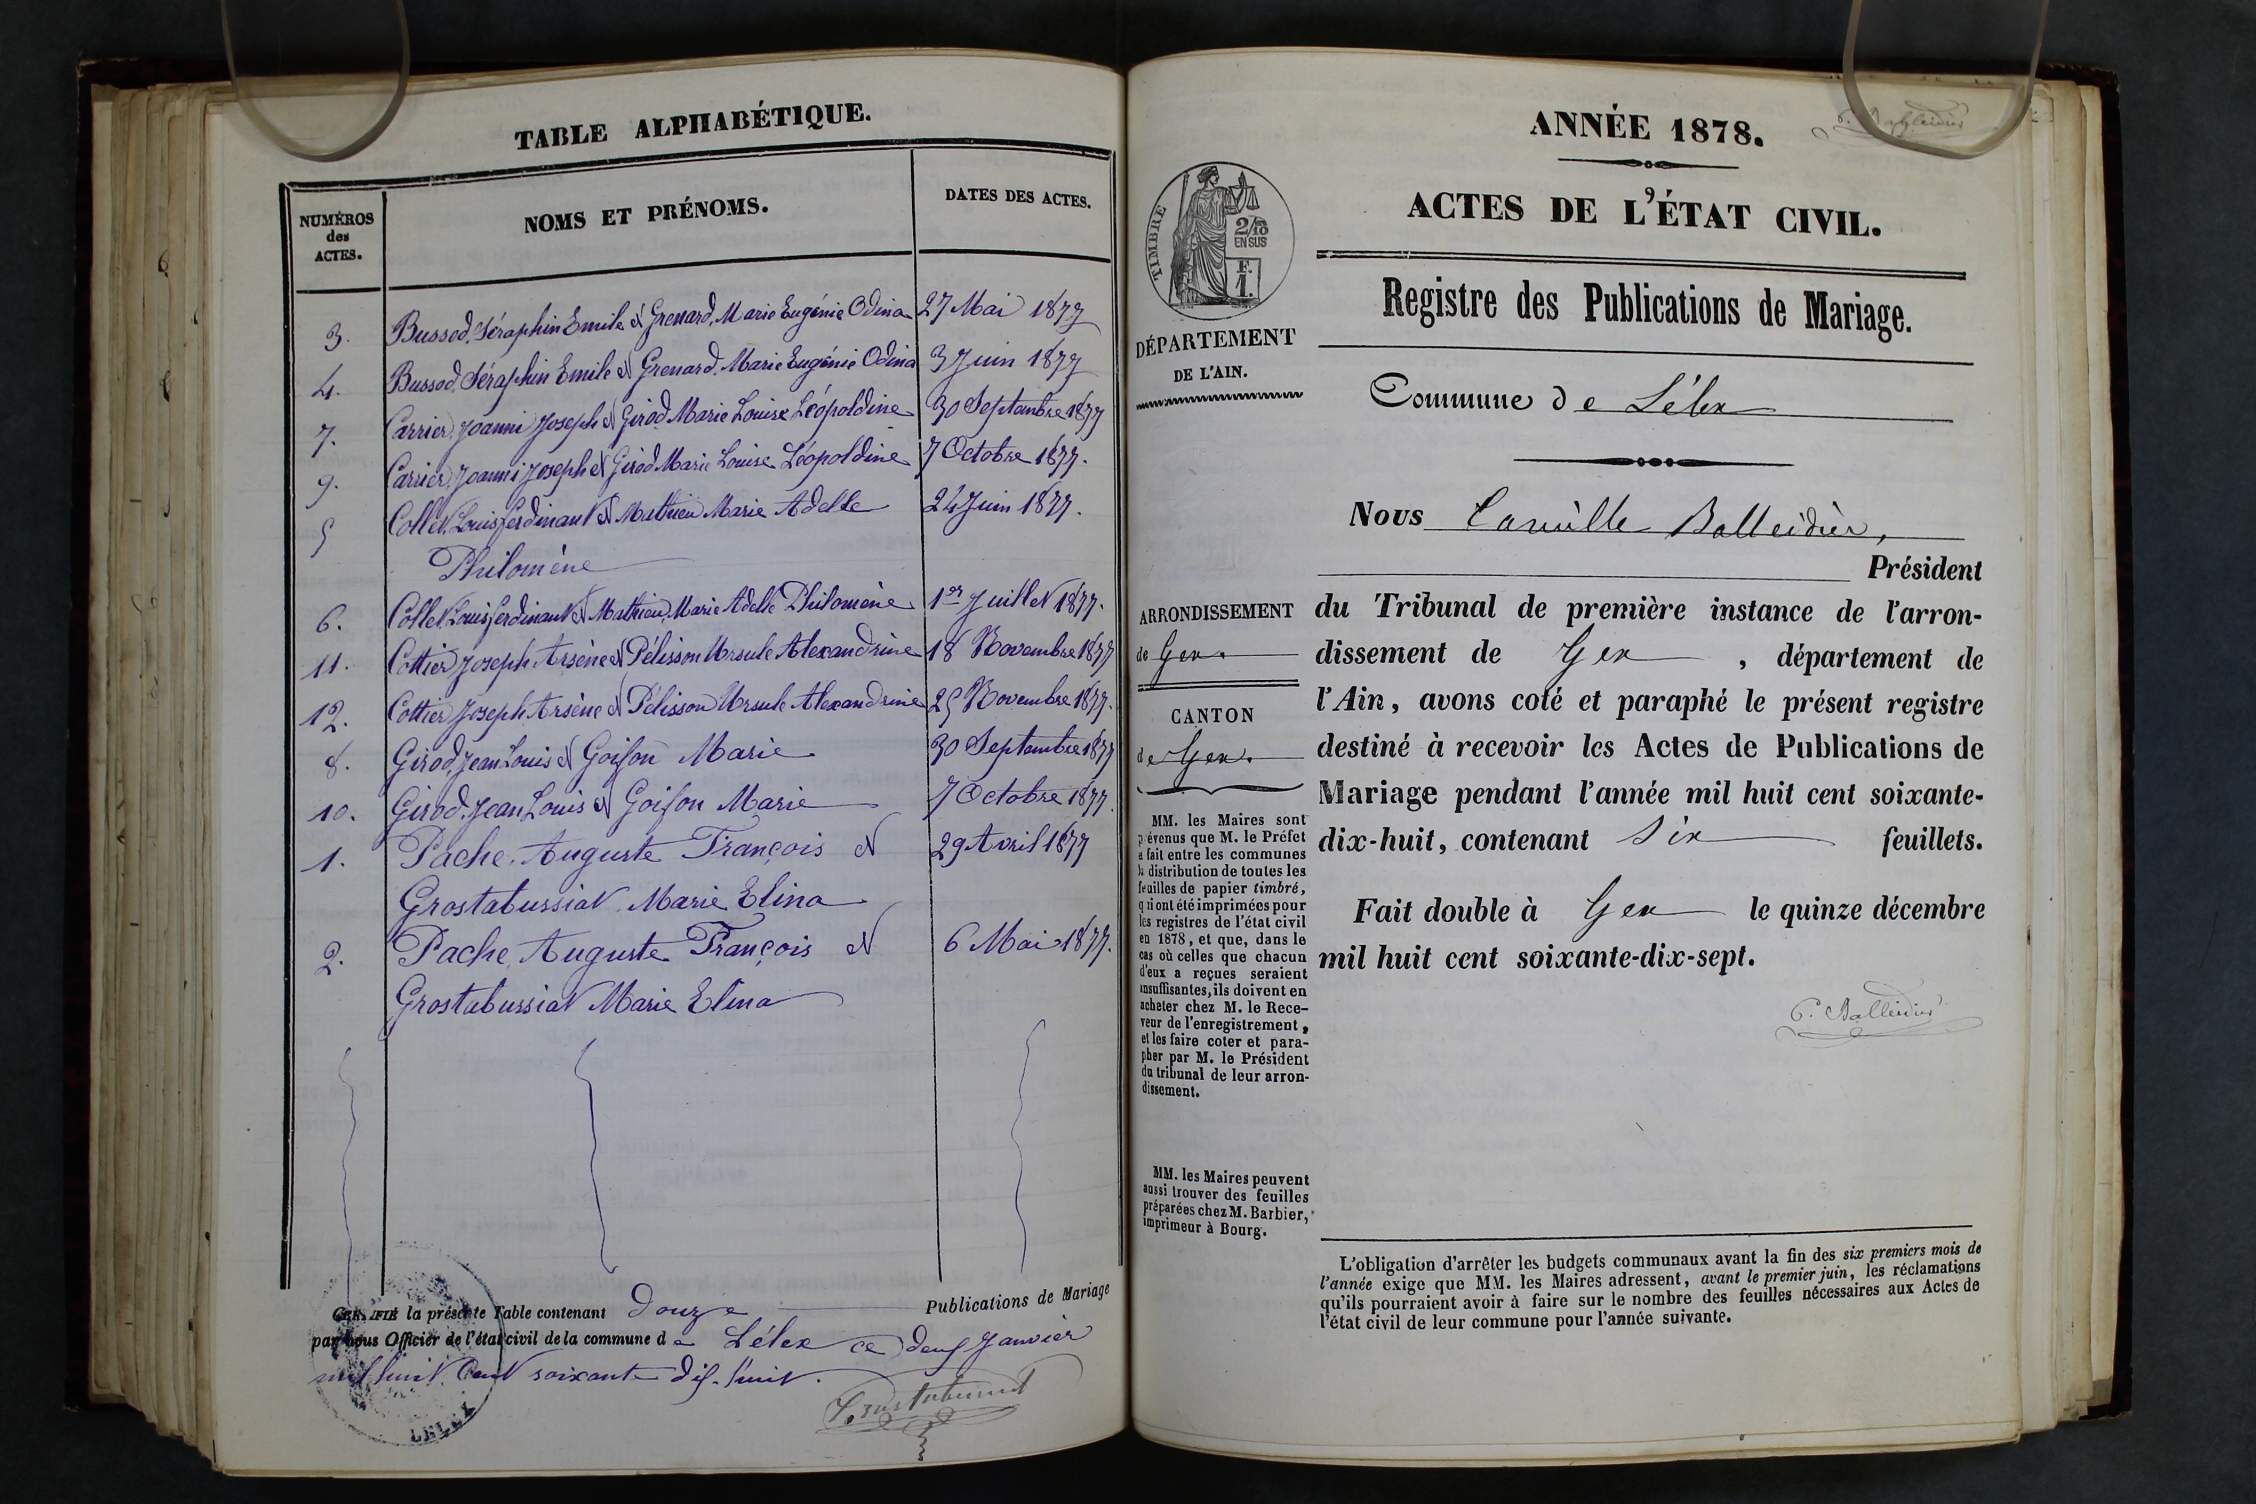 TABLE ALPHABÉTIQUE.
NUMÉROS
des
ACTES.
NOMS ET PRÉNOMS.
DATES DES ACTES.
3. Bussod, Séraphin Emile et Grenard, Marie Eugénie Odina 27 Mai 1877
4. Bussod, Séraphin Emile et Grenard, Marie Eugénie Odina 3 Juin 1877
7. Carrier, Joanni Joseph et Girod Marie Louise Léopoldine 30 Septembre 1877
9. Carrier, Joanni Joseph et Girod Marie Louise Léopoldine 7 Octobre 1877.
5 Collet, Louis Ferdinant et Mathieu Marie Adelle 24 Juin 1877.
Philomène
6. Collet, Louis Ferdinant et Mathieu, Marie Adelle Philomène 1er Juillet 1877.
11. Cottier, Joseph Arsène et Pélisson Ursule Alexandrine 18 Novembre 1877
12. Cottier Joseph Arsène et Pélisson Ursule Alexandrine 25 Novembre 1877.
8. Girod, Jean Louis et Goiffon Marie 30 Septembre 1877
10. Girod, Jean Louis et Goiffon Marie 7 Octobre 1877.
1. Pache, Auguste François et 29 Avril 1877
Grostabussiat Marie Elina
2. Pache, Auguste François et 6 Mai 1877.
Grostabussiat Marie Elina
CERTIFIÉ la présente Table contenant Douze Publications de Mariage
par nous Officier de l'état civil de la commune de Lélex ce deux Janvier
mil huit Cent soixante dix-huit.
LELEX
ANNÉE 1878.
ACTES DE L'ÉTAT CIVIL.
TIMBRE
2/10
EN SUS
F.
1.
Registre des Publications de Mariage.
DÉPARTEMENT
DE L'AIN.
Commune de Lélex
Nous Camille Balleidier,
Président
ARRONDISSEMENT
de Gex.
CANTON
de Gex.
du Tribunal de première instance de l'arron-
dissement de Gex, département de
l'Ain, avons coté et paraphé le présent registre
destiné à recevoir les Actes de Publications de
Mariage pendant l'année mil huit cent soixante-
dix-huit, contenant six feuillets.
Fait double à Gex le quinze décembre
mil huit cent soixante-dix-sept.
C. Balleidier
MM. les Maires sont
prévenus que M. le Préfet
a fait entre les communes
la distribution de toutes les
feuilles de papier timbré,
qui ont été imprimées pour
les registres de l'état civil
en 1878, et que, dans le
cas où celles que chacun
d'eux a reçues seraient
insuffisantes, ils doivent en
acheter chez M. le Rece-
veur de l'enregistrement,
et les faire coter et para-
pher par M. le Président
du tribunal de leur arron-
dissement.
MM. les Maires peuvent
aussi trouver des feuilles
préparées chez M. Barbier,
imprimeur à Bourg.
L'obligation d'arrêter les budgets communaux avant la fin des six premiers mois de
l'année exige que MM. les Maires adressent, avant le premier juin, les réclamations
qu'ils pourraient avoir à faire sur le nombre des feuilles nécessaires aux Actes de
l'état civil de leur commune pour l'année suivante.